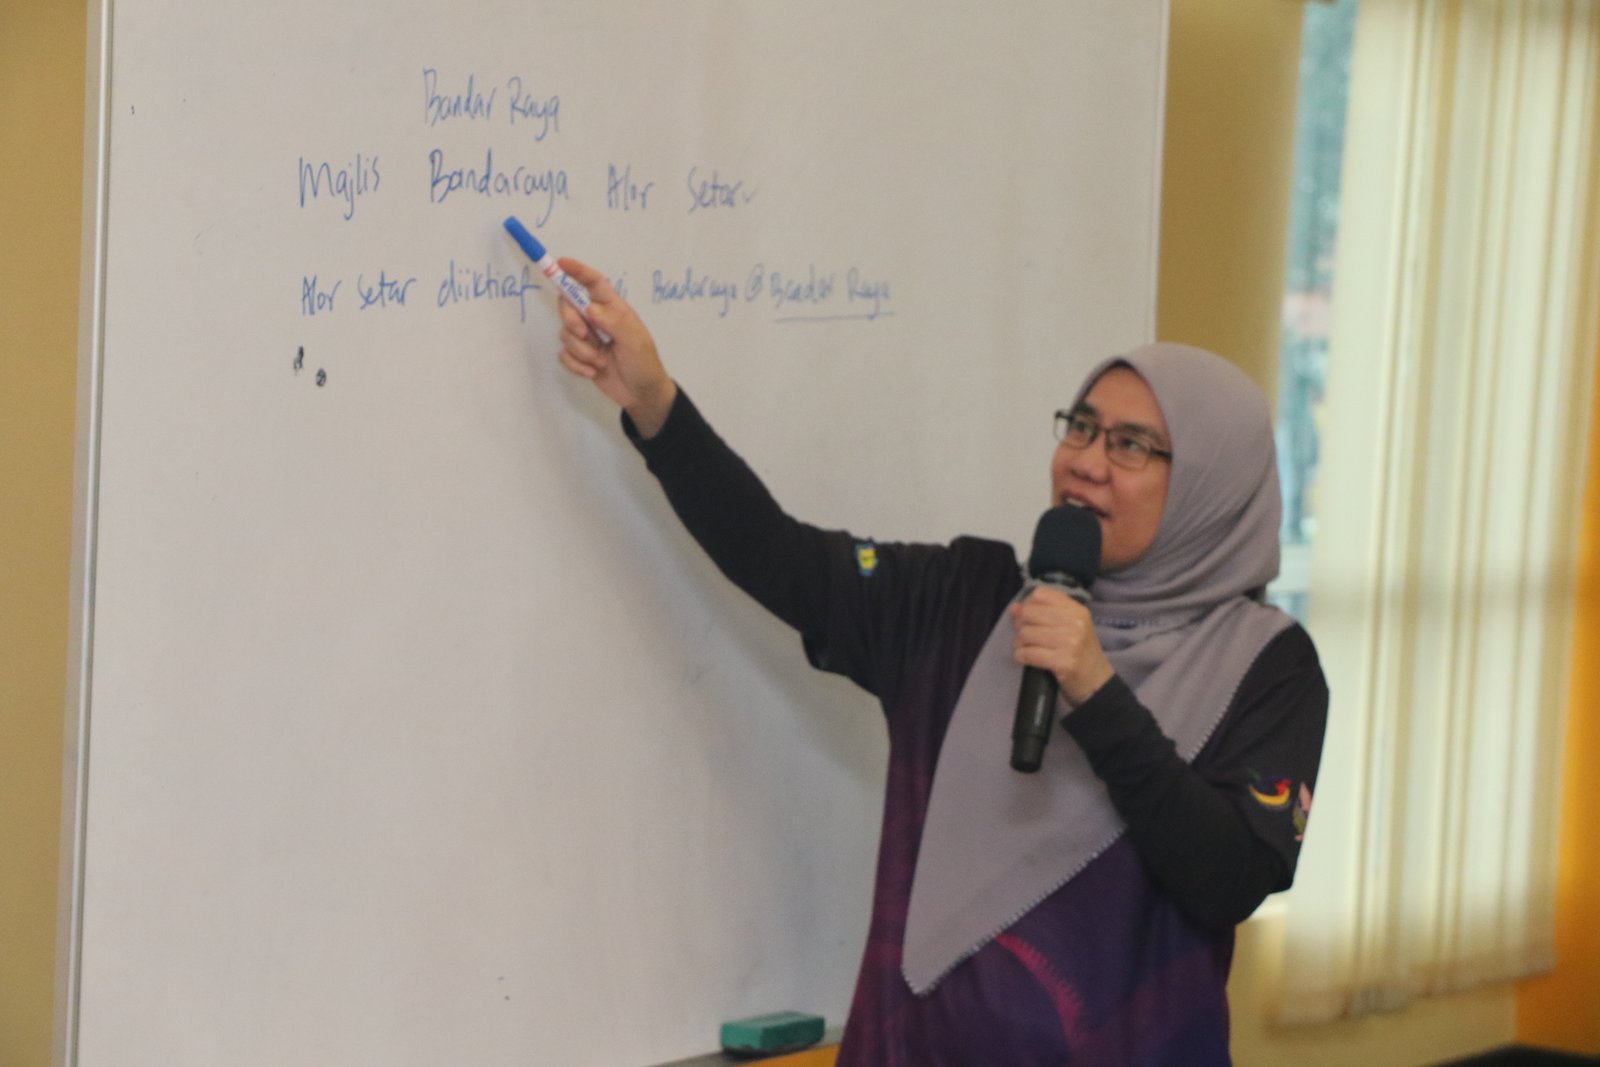 Bandar Raya
Majlis Bandaraya Alor Setar
Alor Setar diiktiraf Bandaraya @ Bandar Raya
Artline